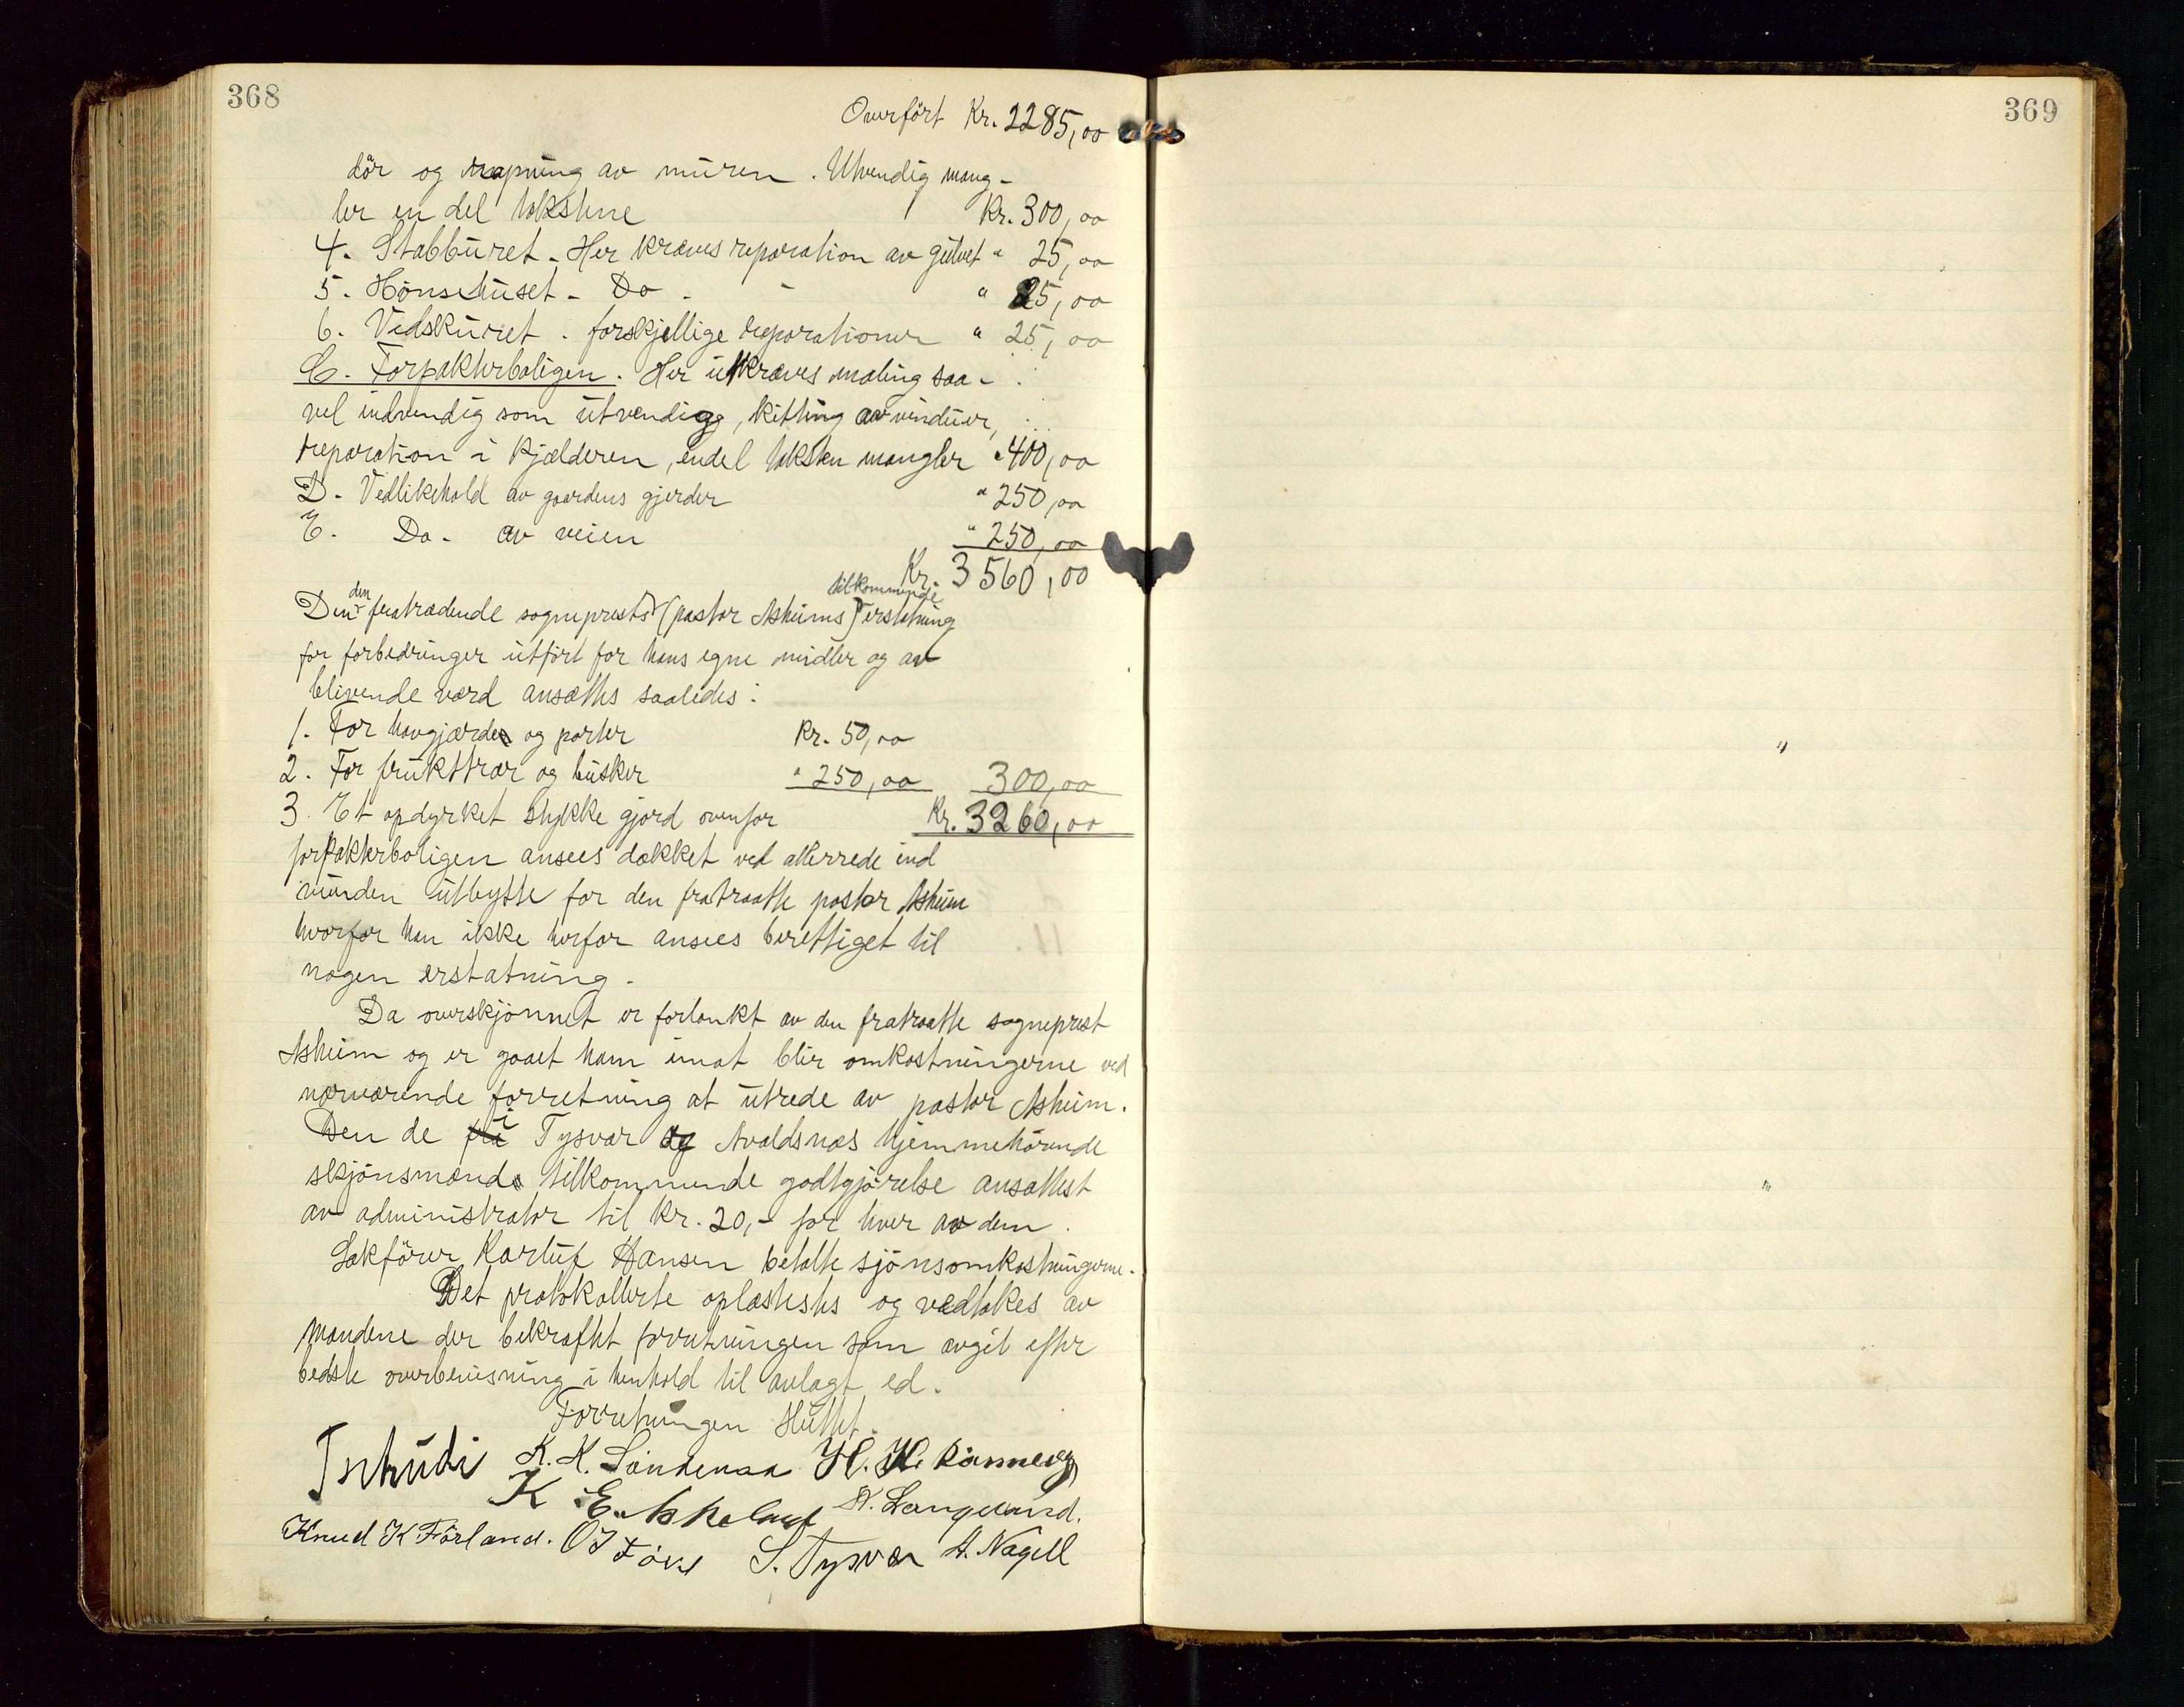 368
369
Overført Kr. 2285,00
dör og rapning av müren. Utvendig mang-
ler en del takstene Kr. 300,00
4. Stabbüret - Her kræves reparation av gülvet " 25,00
5. Hönsehüset - Do - - " 25,00
6. Vedsküret. forskjellige reparationer " 25,00
C. Forpakterboligen. Her ütkræves maling saa-
vel indvendig som ütvendig, kitting av vindüer,
reparation i kjælderen, endel taksten mangler " 400,00
D. Vedlikehold av gaardens gjerder " 250,00
E. Do - av veien " 250,00
Kr. 3560,00
Den den fratrædende sogneprest (pastor Asheims) tilkommende erstatning
for forbedringer ütfört for hans egne midler og av
blivende værd ansættes saaledes:
1. For havgjærde og porter Kr. 50,00
2. For frükttrær og büsker " 250,00 300,00
3. Et opdyrket stykke gjord ovenfor Kr. 3260,00
forpakterboligen ansees dækket ved allerrede ind
vünden ütbytte for den fratraatte pastor Asheim
hvorfor han ikke herfor ansees berettiget til
nogen erstatning.
Da overskjönnet er forlankt av den fratraatte sogneprest
Asheim og er gaaet ham imot blir omkostningerne ved
nærværende forretning at ütrede av pastor Asheim.
Den de fra i Tysvær og Avaldsnæs hjemmehörende
skjönsmænds tilkommende godtgjörelse ansattest
av administrator til kr. 20,- for hver av dem.
Sakförer Karluf Hansen betalte sjönsomkostningerne.
Det protokollerte oplæstestes og vedtokes av
mændene der bekræftet forretningen som avgit efter
bedste overbevisning i henhold til avlagt ed.
Forretningen slüttet.
Tschudi K. K. Söndenaa H. H. Rönnevig
K E. Askeland N. Langeland.
Knud K Förland. O J Före S. Tysvær A. Nagell